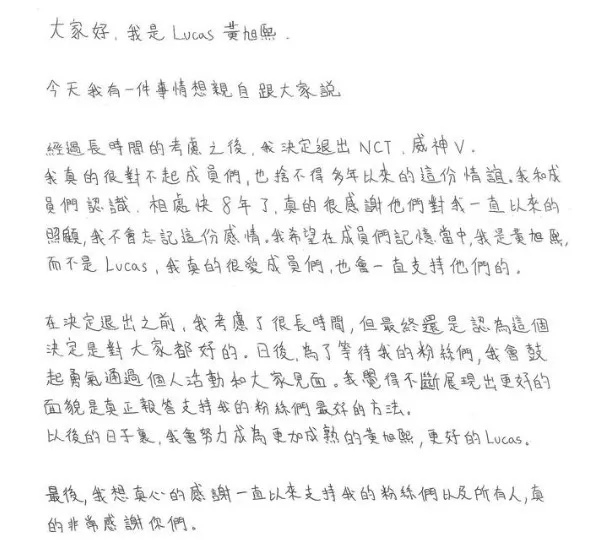 大家好, 我是 Lucas 黃旭熙.
今天我有一件事情想親自跟大家說
經過長時間的考慮之後, 我決定退出 NCT, 威神 V.
我真的很對不起成員們, 也捨不得多年以來的這份情誼。我和成
員們認識, 相處快 8 年了, 真的很感謝他們對我一直以來的
照顧, 我不會忘記這份感情。我希望在成員們記憶當中, 我是黃旭熙,
而不是 Lucas, 我真的很愛成員們, 也會一直支持他們的。
在決定退出之前, 我考慮了很長時間, 但最終還是認為這個
決定是對大家都好的。日後, 為了等待我的粉絲們, 我會鼓
起勇氣通過個人活動和大家見面。我覺得不斷展現出更好的
面貌是真正報答支持我的粉絲們最好的方法。
以後的日子裏, 我會努力成為更加成熟的黃旭熙, 更好的 Lucas。
最後, 我想真心的感謝一直以來支持我的粉絲們以及所有人, 真
的非常感謝你們。